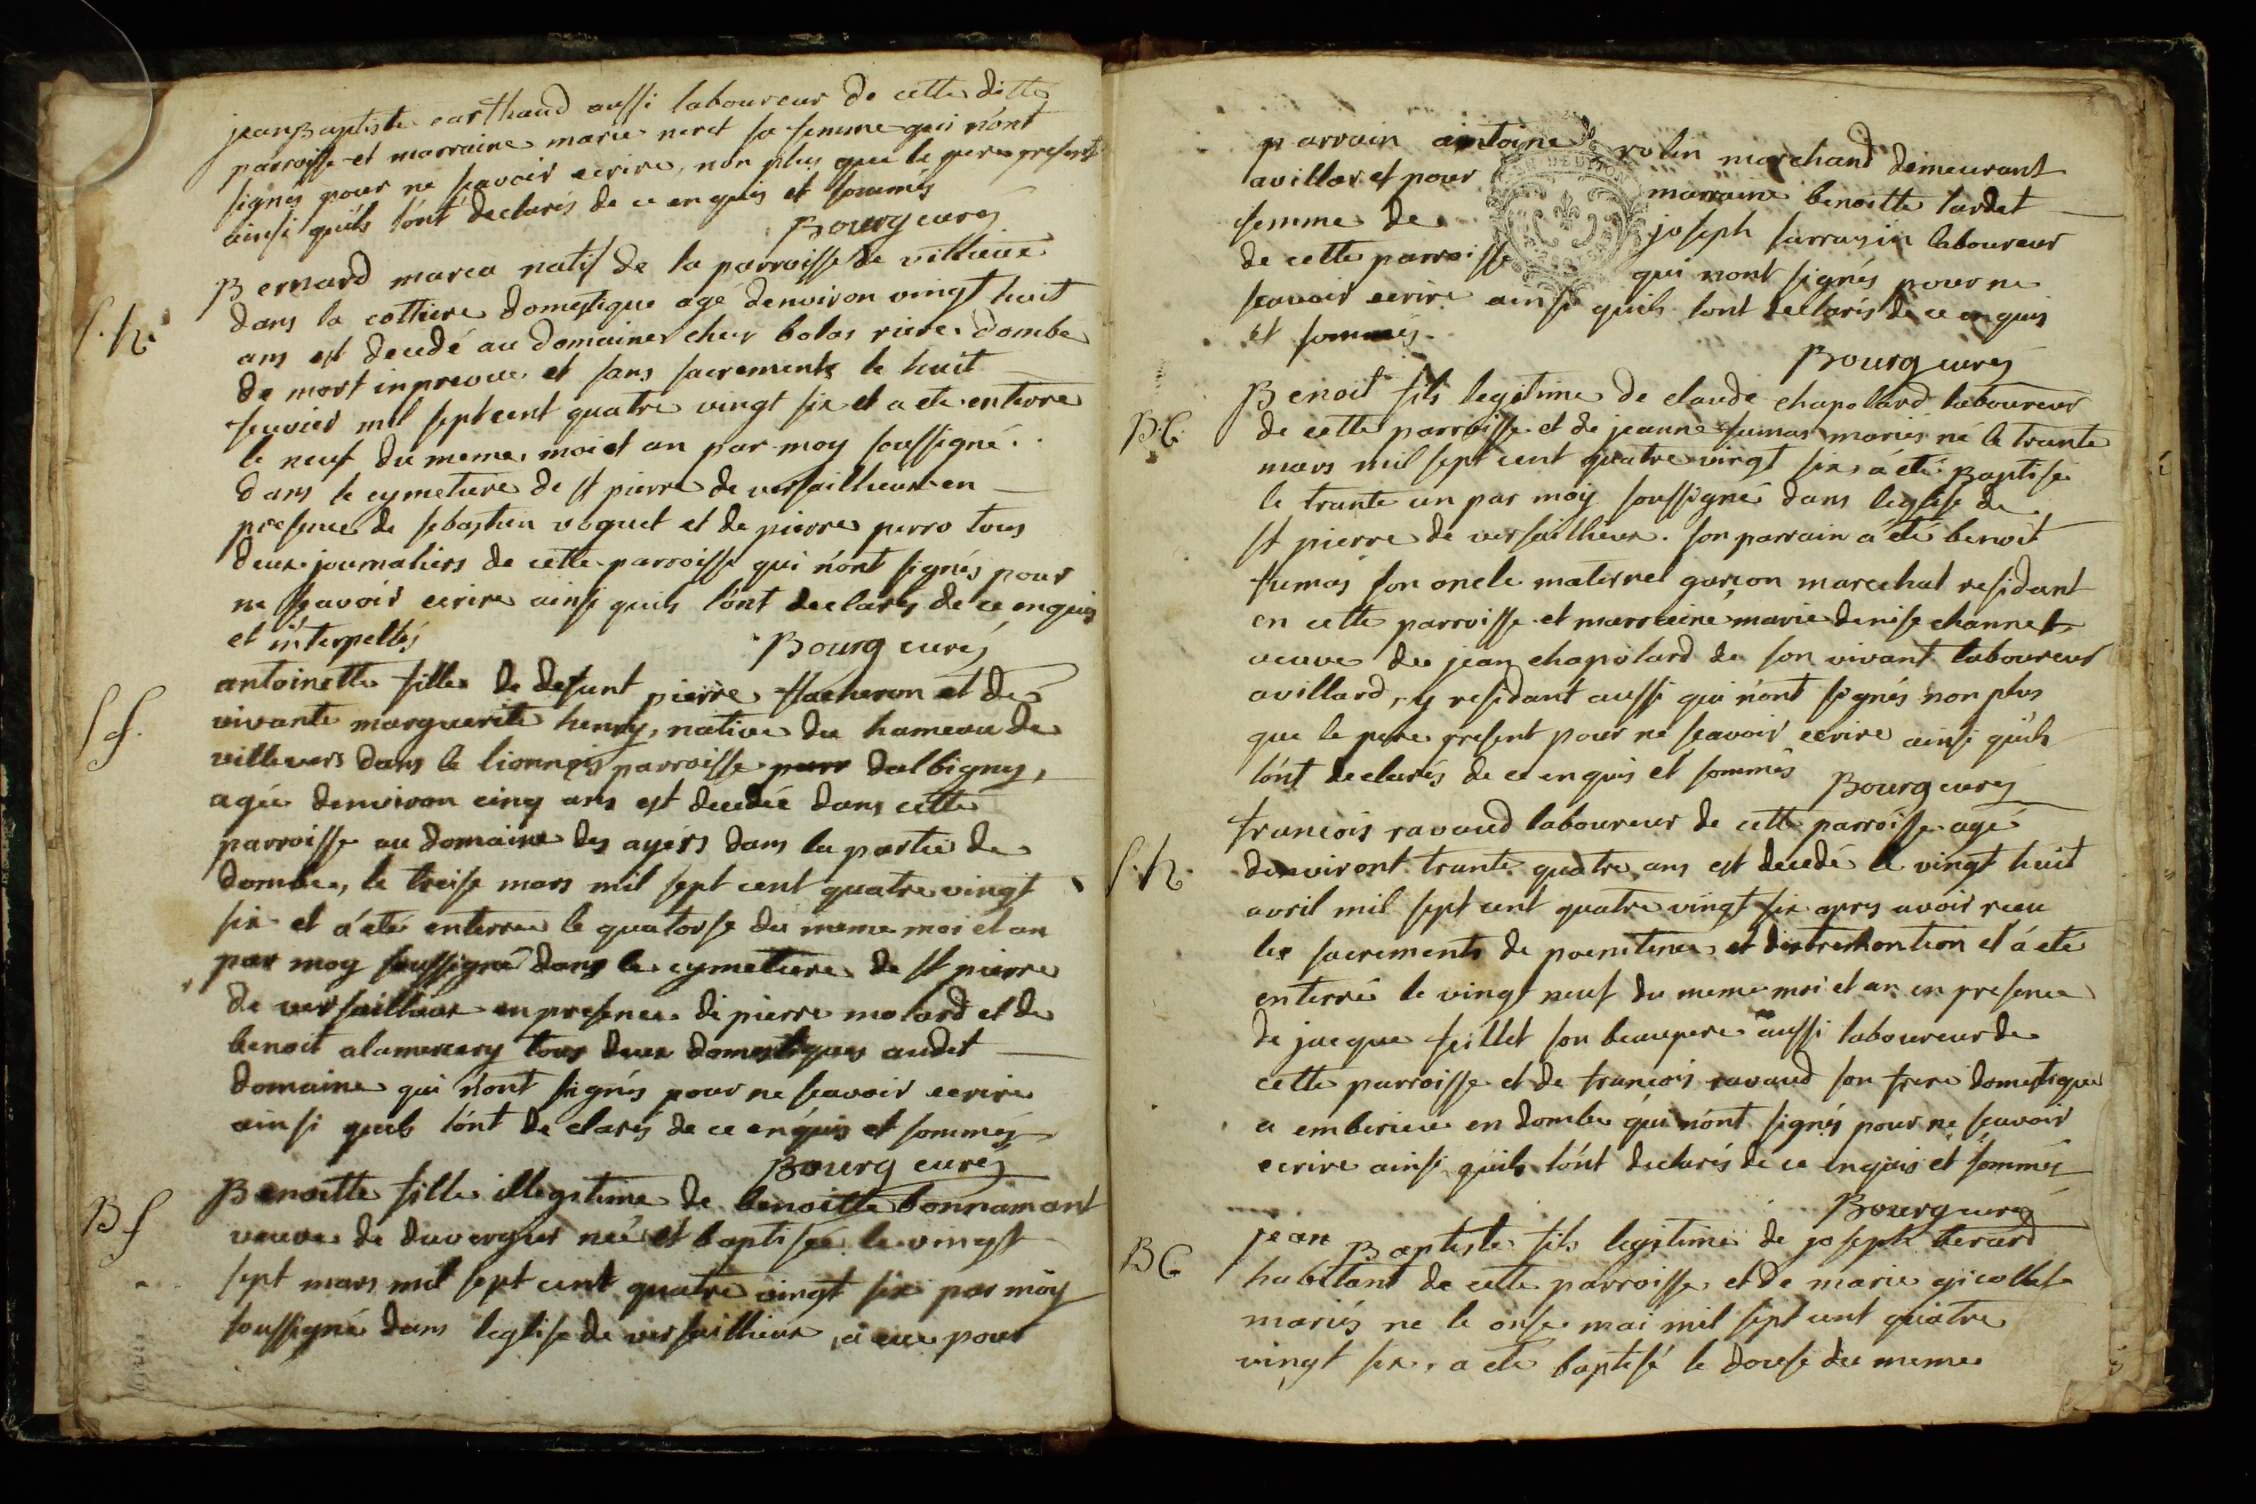 jean Baptiste carthaud aussi laboureur de cette ditte
parroisse et marraine marie neret sa femme qui n'ont
signés pour ne scavoir ecrire, non plus que le pere present
ainsi qu'ils l'ont declarés de ce enquis et sommés
Bourg curé
S. h.
Bernard marca natif de la parroisse de villieux
dans la cottiere domestique agé denviron vingt huit
ans est decedé au domaine cheu bolas riere dombe
de mort inpreveue et sans sacrements le huit
fevrier mil sept cent quatre vingt six et a eté enterré
le neuf du meme moi et an par moy soussigné
dans le cymetiere de st pierre de versaillieux en
presence de sebastien voguet et de pierre perro tous
deux journaliers de cette parroisse qui n'ont signés pour
ne scavoir ecrire ainsi quils l'ont declarés de ce enquis
et interpellés
Bourg curé
S f.
antoinette fille de defunt pierre flacheron et de
vivante marguerite henry, native du hameau de
villevers dans le lionnois parroisse dalbigny,
agée denviron cinq ans est decedée dans cette
parroisse au domaine des ayérs dans la partie de
dombe, le treise mars mil sept cent quatre vingt
six et a été enterrée le quatorse du meme moi et an
par moy soussigné dans le cymetiere de st pierre
de versaillieux en presence de pierre molard et de
benoit alamercery tous deux domestiques audit
domaine qui n'ont signés pour ne scavoir ecrire
ainsi quils l'ont declarés de ce enquis et sommés
Bourg curé
B f
Benoitte fille illegitime de benoitte bonnamant
veuve de duverger née et baptisée le vingt
sept mars mil sept cent quatre vingt six par moy
soussigné dans leglise de versaillieux, a eue pour
parrain antoine rolin marchand demeurant
avillar et pour marraine benoitte tardet
femme de joseph sarrasin laboureur
de cette parroisse qui nont signés pour ne
scavoir ecrire ainsi quils lont declarés de ce enquis
et sommés
Bourg curé
B. G.
Benoit fils legitime de claude chapolard laboureur
de cette parroisse et de jeanne fumas mariés né le trante
mars mil sept cent quatre vingt six, a été Baptisé
le trante un par moy soussigné dans leglise de
st pierre de versaillieux. son parrain a été benoit
fumas son oncle maternel garçon marechal residant
en cette parroisse et marraine marie denise channet
veuve de jean chapolard de son vivant laboureur
avillard, y residant aussi qui n'ont signés non plus
que le pere present pour ne scavoir ecrire ainsi quils
l'ont declarés de ce enquis et sommés
Bourg curé
S. h.
francois ravaud laboureur de cette parroisse agé
denviront trante quatre ans est decedé le vingt huit
avril mil sept cent quatre vingt six apres avoir receu
les sacrements de poenitence et dextremontion et a eté
enterré le vingt neuf du meme moi et an en presence
de jacque feillet son beaupere aussi laboureur de
cette parroisse et de francois ravaud son frere domestique
a emberieu en dombe qui n'ont signés pour ne scavoir
ecrire ainsi quils l'ont declarés de ce enquis et sommés
Bourg curé
B G
jean Baptiste fils legitime de joseph berard
habitant de cette parroisse et de marie gicollet
mariés ne le onse mai mil sept cent quatre
vingt six, a eté baptisé le douse du meme